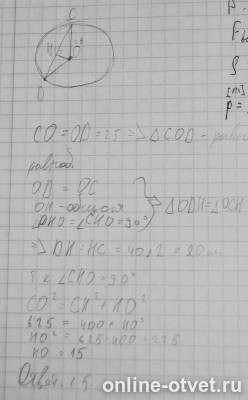 C
H
O
D
P -
F
ρ
[m]
p =
CO = OD = 25 => △COD - равноб
равноб.
OD = OC
OH - общая
∠DHO = ∠CHO = 90°
} △ODH = △OCH
=> DH = HC = 40:2 = 20 см.
Т.к ∠CHO = 90°
CO² = CH² + HO²
625 = 400 + HO²
HO² = 625 - 400 = 225
HO = 15
Ответ: 15
online-otvet.ru